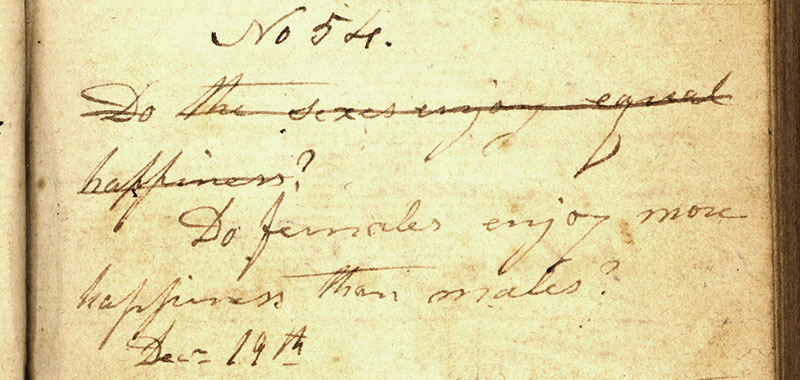 No 54.
Do the sexes enjoy equal
happiness?
Do females enjoy more
happiness than males?
Dec 19th